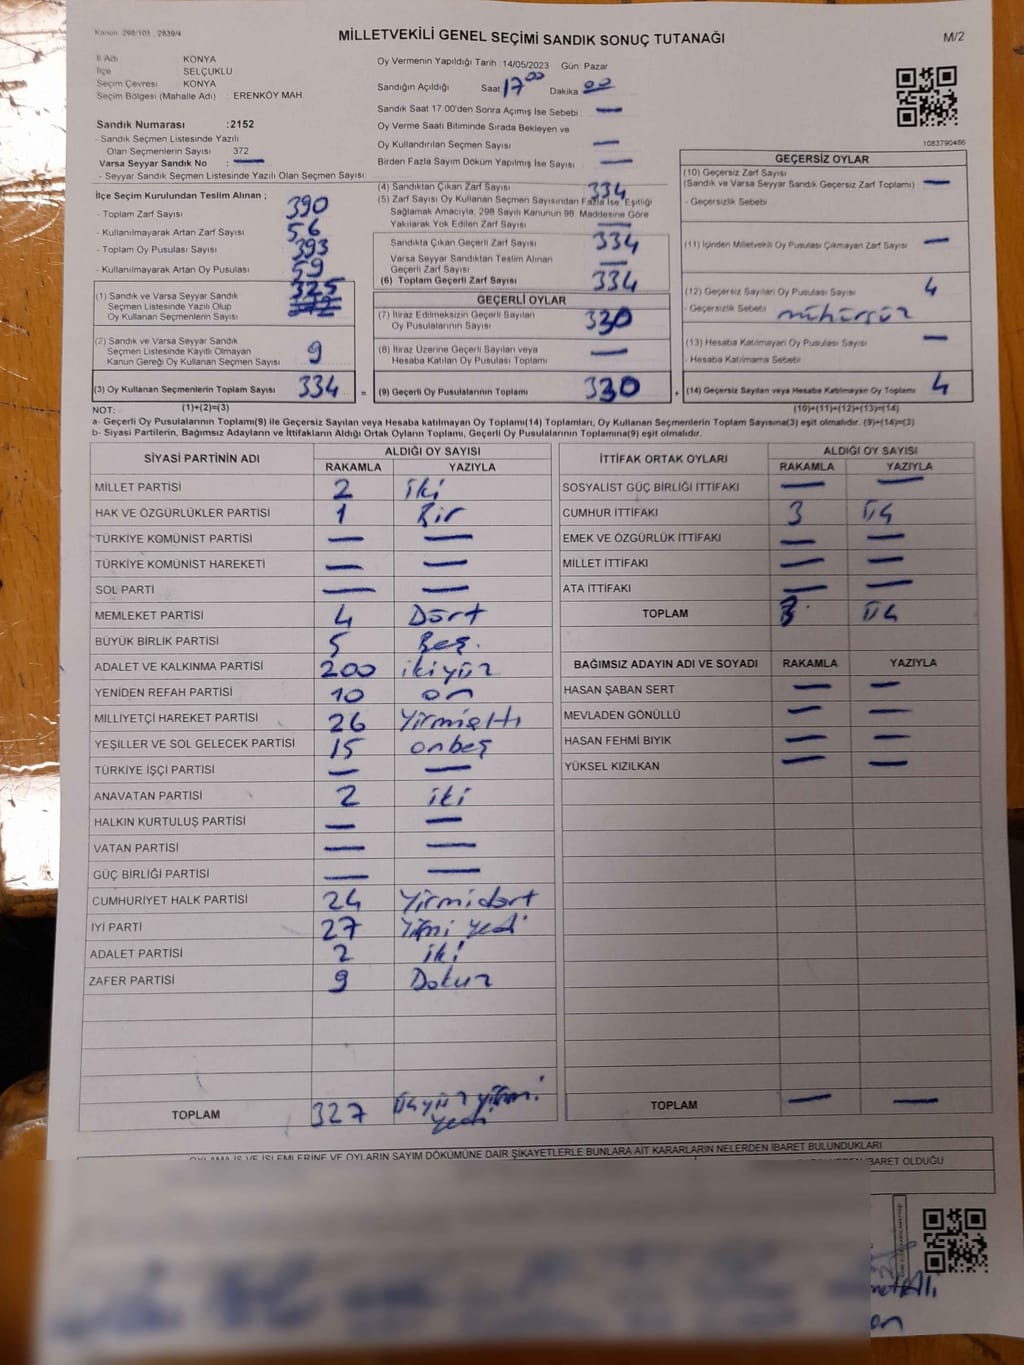 Kanun 298/105 , 2839/4
MİLLETVEKİLİ GENEL SEÇİMİ SANDIK SONUÇ TUTANAĞI
M/2
İl Adı KONYA
İlçe SELÇUKLU
Seçim Çevresi KONYA
Seçim Bölgesi (Mahalle Adı) : ERENKÖY MAH.
Sandık Numarası :2152
- Sandık Seçmen Listesinde Yazılı
Olan Seçmenlerin Sayısı 372
Varsa Seyyar Sandık No : —
- Seyyar Sandık Seçmen Listesinde Yazılı Olan Seçmen Sayısı
Oy Vermenin Yapıldığı Tarih : 14/05/2023 Gün: Pazar
Sandığın Açıldığı Saat 17 00 Dakika 00
Sandık Saat 17:00'den Sonra Açımış İse Sebebi —
Oy Verme Saati Bitiminde Sırada Bekleyen ve
Oy Kullandırılan Seçmen Sayısı —
Birden Fazla Sayım Döküm Yapılmış İse Sayısı —
1083790486
İlçe Seçim Kurulundan Teslim Alınan ;
- Toplam Zarf Sayısı 390
- Kullanılmayarak Artan Zarf Sayısı 56
- Toplam Oy Pusulası Sayısı 393
- Kullanılmayarak Artan Oy Pusulası 59
(1) Sandık ve Varsa Seyyar Sandık 325
Seçmen Listesinde Yazılı Olup
Oy Kullanan Seçmenlerin Sayısı
(2) Sandık ve Varsa Seyyar Sandık
Seçmen Listesinde Kayıtlı Olmayan 9
Kanun Gereği Oy Kullanan Seçmen Sayısı
(3) Oy Kullanan Seçmenlerin Toplam Sayısı 334 =
(1)+(2)=(3)
(4) Sandıktan Çıkan Zarf Sayısı 334
(5) Zarf Sayısı Oy Kullanan Seçmen Sayısından Fazla İse, Eşitliği
Sağlamak Amacıyla, 298 Sayılı Kanunun 98. Maddesine Göre
Yakılarak Yok Edilen Zarf Sayısı —
Sandıkta Çıkan Geçerli Zarf Sayısı 334
Varsa Seyyar Sandıktan Teslim Alınan
Geçerli Zarf Sayısı —
(6) Toplam Geçerli Zarf Sayısı 334
GEÇERLİ OYLAR
(7) İtiraz Edilmeksizin Geçerli Sayılan
Oy Pusulalarının Sayısı 330
(8) İtiraz Üzerine Geçerli Sayılan veya
Hesaba Katılan Oy Pusulası Toplamı —
(9) Geçerli Oy Pusulalarının Toplamı 330 +
GEÇERSİZ OYLAR
(10) Geçersiz Zarf Sayısı
(Sandık ve Varsa Seyyar Sandık Geçersiz Zarf Toplamı) —
- Geçersizlik Sebebi
(11) İçinden Milletvekili Oy Pusulası Çıkmayan Zarf Sayısı —
(12) Geçersiz Sayılan Oy Pusulası Sayısı 4
- Geçersizlik Sebebi mühürsüz
(13) Hesaba Katılmayan Oy Pusulası Sayısı —
- Hesaba Katılmama Sebebi
(14) Geçersiz Sayılan veya Hesaba Katılmayan Oy Toplamı 4
(10)+(11)+(12)+(13)=(14)
NOT:
a- Geçerli Oy Pusulalarının Toplamı(9) ile Geçersiz Sayılan veya Hesaba katılmayan Oy Toplamı(14) Toplamları, Oy Kullanan Seçmenlerin Toplam Sayısına(3) eşit olmalıdır. (9)+(14)=(3)
b- Siyasi Partilerin, Bağımsız Adayların ve İttifakların Aldığı Ortak Oyların Toplamı, Geçerli Oy Pusulalarının Toplamına(9) eşit olmalıdır.
SİYASİ PARTİNİN ADI ALDIĞI OY SAYISI
RAKAMLA YAZIYLA
MİLLET PARTİSİ 2 iki
HAK VE ÖZGÜRLÜKLER PARTİSİ 1 Bir
TÜRKİYE KOMÜNİST PARTİSİ — —
TÜRKİYE KOMÜNİST HAREKETİ — —
SOL PARTİ — —
MEMLEKET PARTİSİ 4 Dört
BÜYÜK BİRLİK PARTİSİ 5 Beş.
ADALET VE KALKINMA PARTİSİ 200 ikiyüz
YENİDEN REFAH PARTİSİ 10 on
MİLLİYETÇİ HAREKET PARTİSİ 26 Yirmialtı
YEŞİLLER VE SOL GELECEK PARTİSİ 15 onbeş
TÜRKİYE İŞÇİ PARTİSİ — —
ANAVATAN PARTİSİ 2 iki
HALKIN KURTULUŞ PARTİSİ — —
VATAN PARTİSİ — —
GÜÇ BİRLİĞİ PARTİSİ — —
CUMHURİYET HALK PARTİSİ 24 Yirmidört
İYİ PARTİ 27 Yirmi yedi
ADALET PARTİSİ 2 iki
ZAFER PARTİSİ 9 Dokuz
TOPLAM 327 üçyüz yirmi
yedi
İTTİFAK ORTAK OYLARI ALDIĞI OY SAYISI
RAKAMLA YAZIYLA
SOSYALİST GÜÇ BİRLİĞİ İTTİFAKI — —
CUMHUR İTTİFAKI 3 üç
EMEK VE ÖZGÜRLÜK İTTİFAKI — —
MİLLET İTTİFAKI — —
ATA İTTİFAKI — —
TOPLAM 3 üç
BAĞIMSIZ ADAYIN ADI VE SOYADI RAKAMLA YAZIYLA
HASAN ŞABAN SERT — —
MEVLADEN GÖNÜLLÜ — —
HASAN FEHMİ BIYIK — —
YÜKSEL KIZILKAN — —
TOPLAM — —
OYLAMA İŞ VE İŞLEMLERİNE VE OYLARIN SAYIM DÖKÜMÜNE DAİR ŞİKAYETLERLE BUNLARA AİT KARARLARIN NELERDEN İBARET BULUNDUKLARI
İBARET OLDUĞU